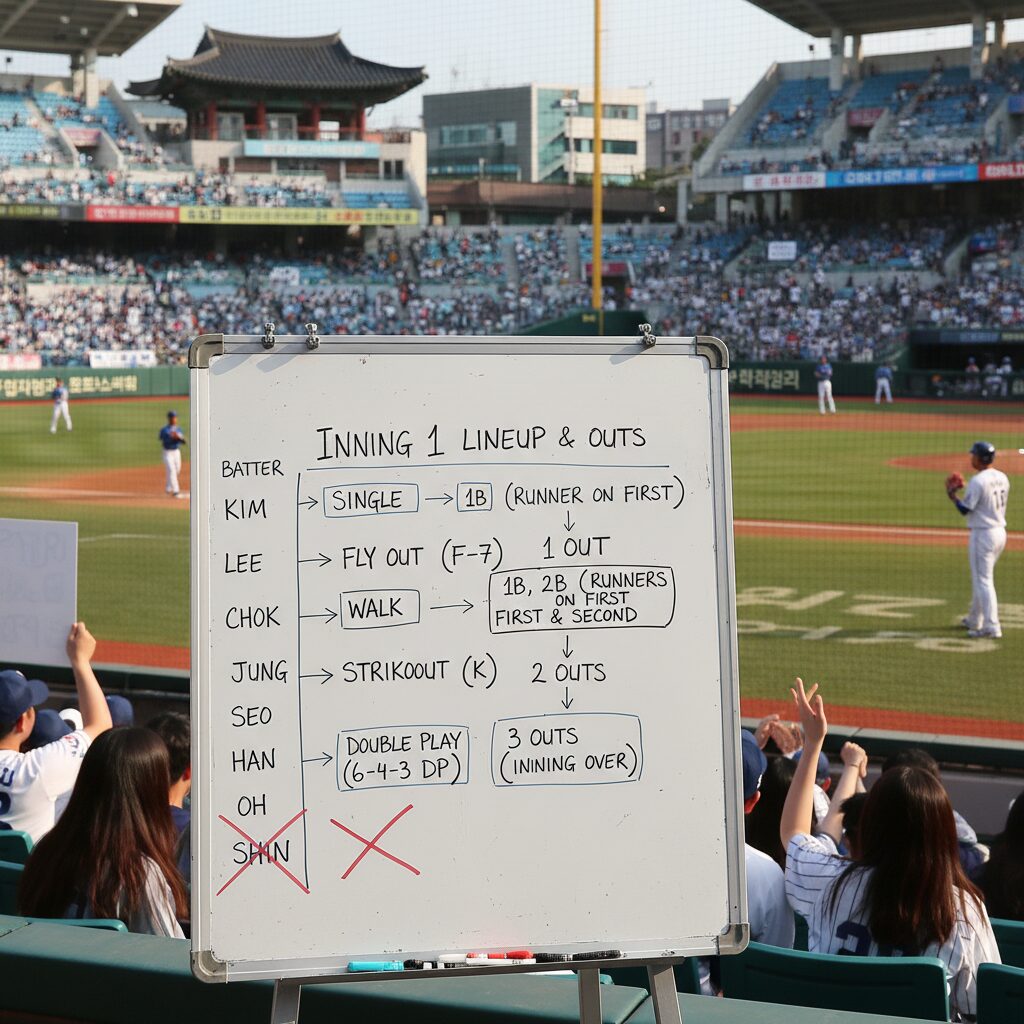 INNING 1 LINEUP & OUTS
BATTER
KIM → SINGLE → 1B (RUNNER ON FIRST)
↓
LEE → FLY OUT (F-7) 1 OUT
CHOK → WALK → 1B, 2B (RUNNERS
ON FIRST
FIRST & SECOND
↓
JUNG → STRIKOOUT (K) 2 OUTS
↓
SEO
HAN → DOUBLE PLAY 3 OUTS
(6-4-3 DP) (INING OVER)
OH
SHIN